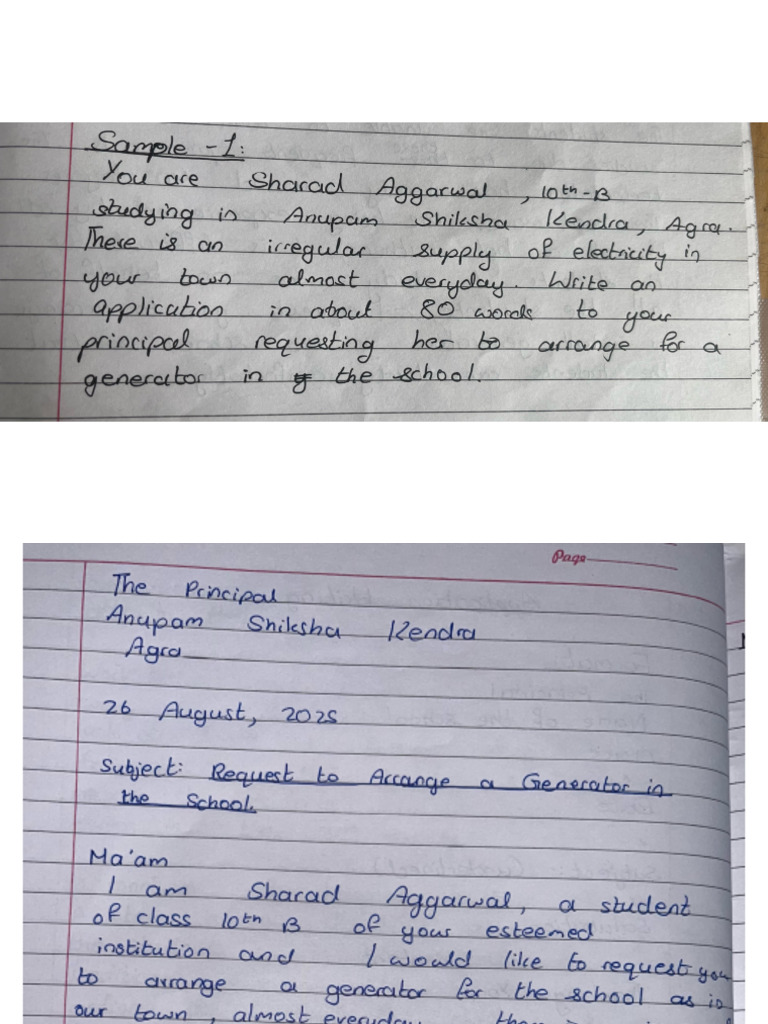 Sample - 1:
You are Sharad Aggarwal, 10th-B
studying in Anupam Shiksha Kendra, Agra.
There is an irregular supply of electricity in
your town almost everyday. Write an
application in about 80 words to your
principal requesting her to arrange for a
generator in the school.
Page
The Principal
Anupam Shiksha Kendra
Agra
26 August, 2025
Subject: Request to Arrange a Generator in
the School.
Ma'am
I am Sharad Aggarwal, a student
of class 10th B of your esteemed
institution and I would like to request you
to arrange a generator for the school as in
our town, almost everyday